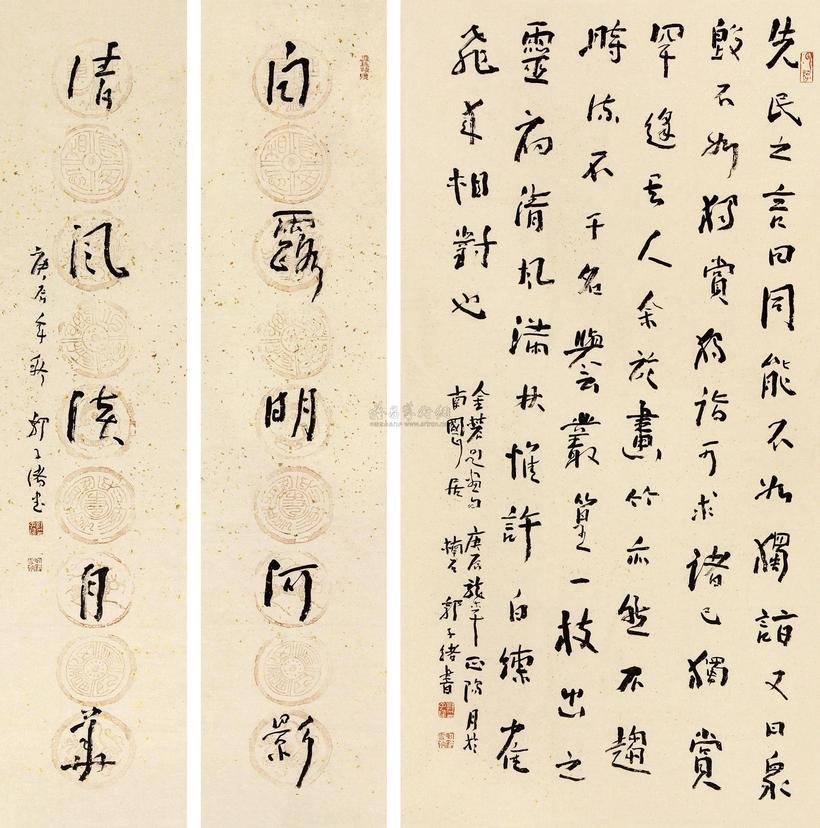 先民之言曰同能不如獨詣又曰眾
毀不如獨賞獨詣可求諸己獨賞
罕逢其人余於畫竹亦然不趨
時流不干名譽叢篁一枝出之
靈府清風滿林惟許白練雀
飛來相對也
金農題畫句 庚辰 月於
南國 居 楠石 郭子緒書
白露明河影
清風淡月華
庚辰年 郭子緒書